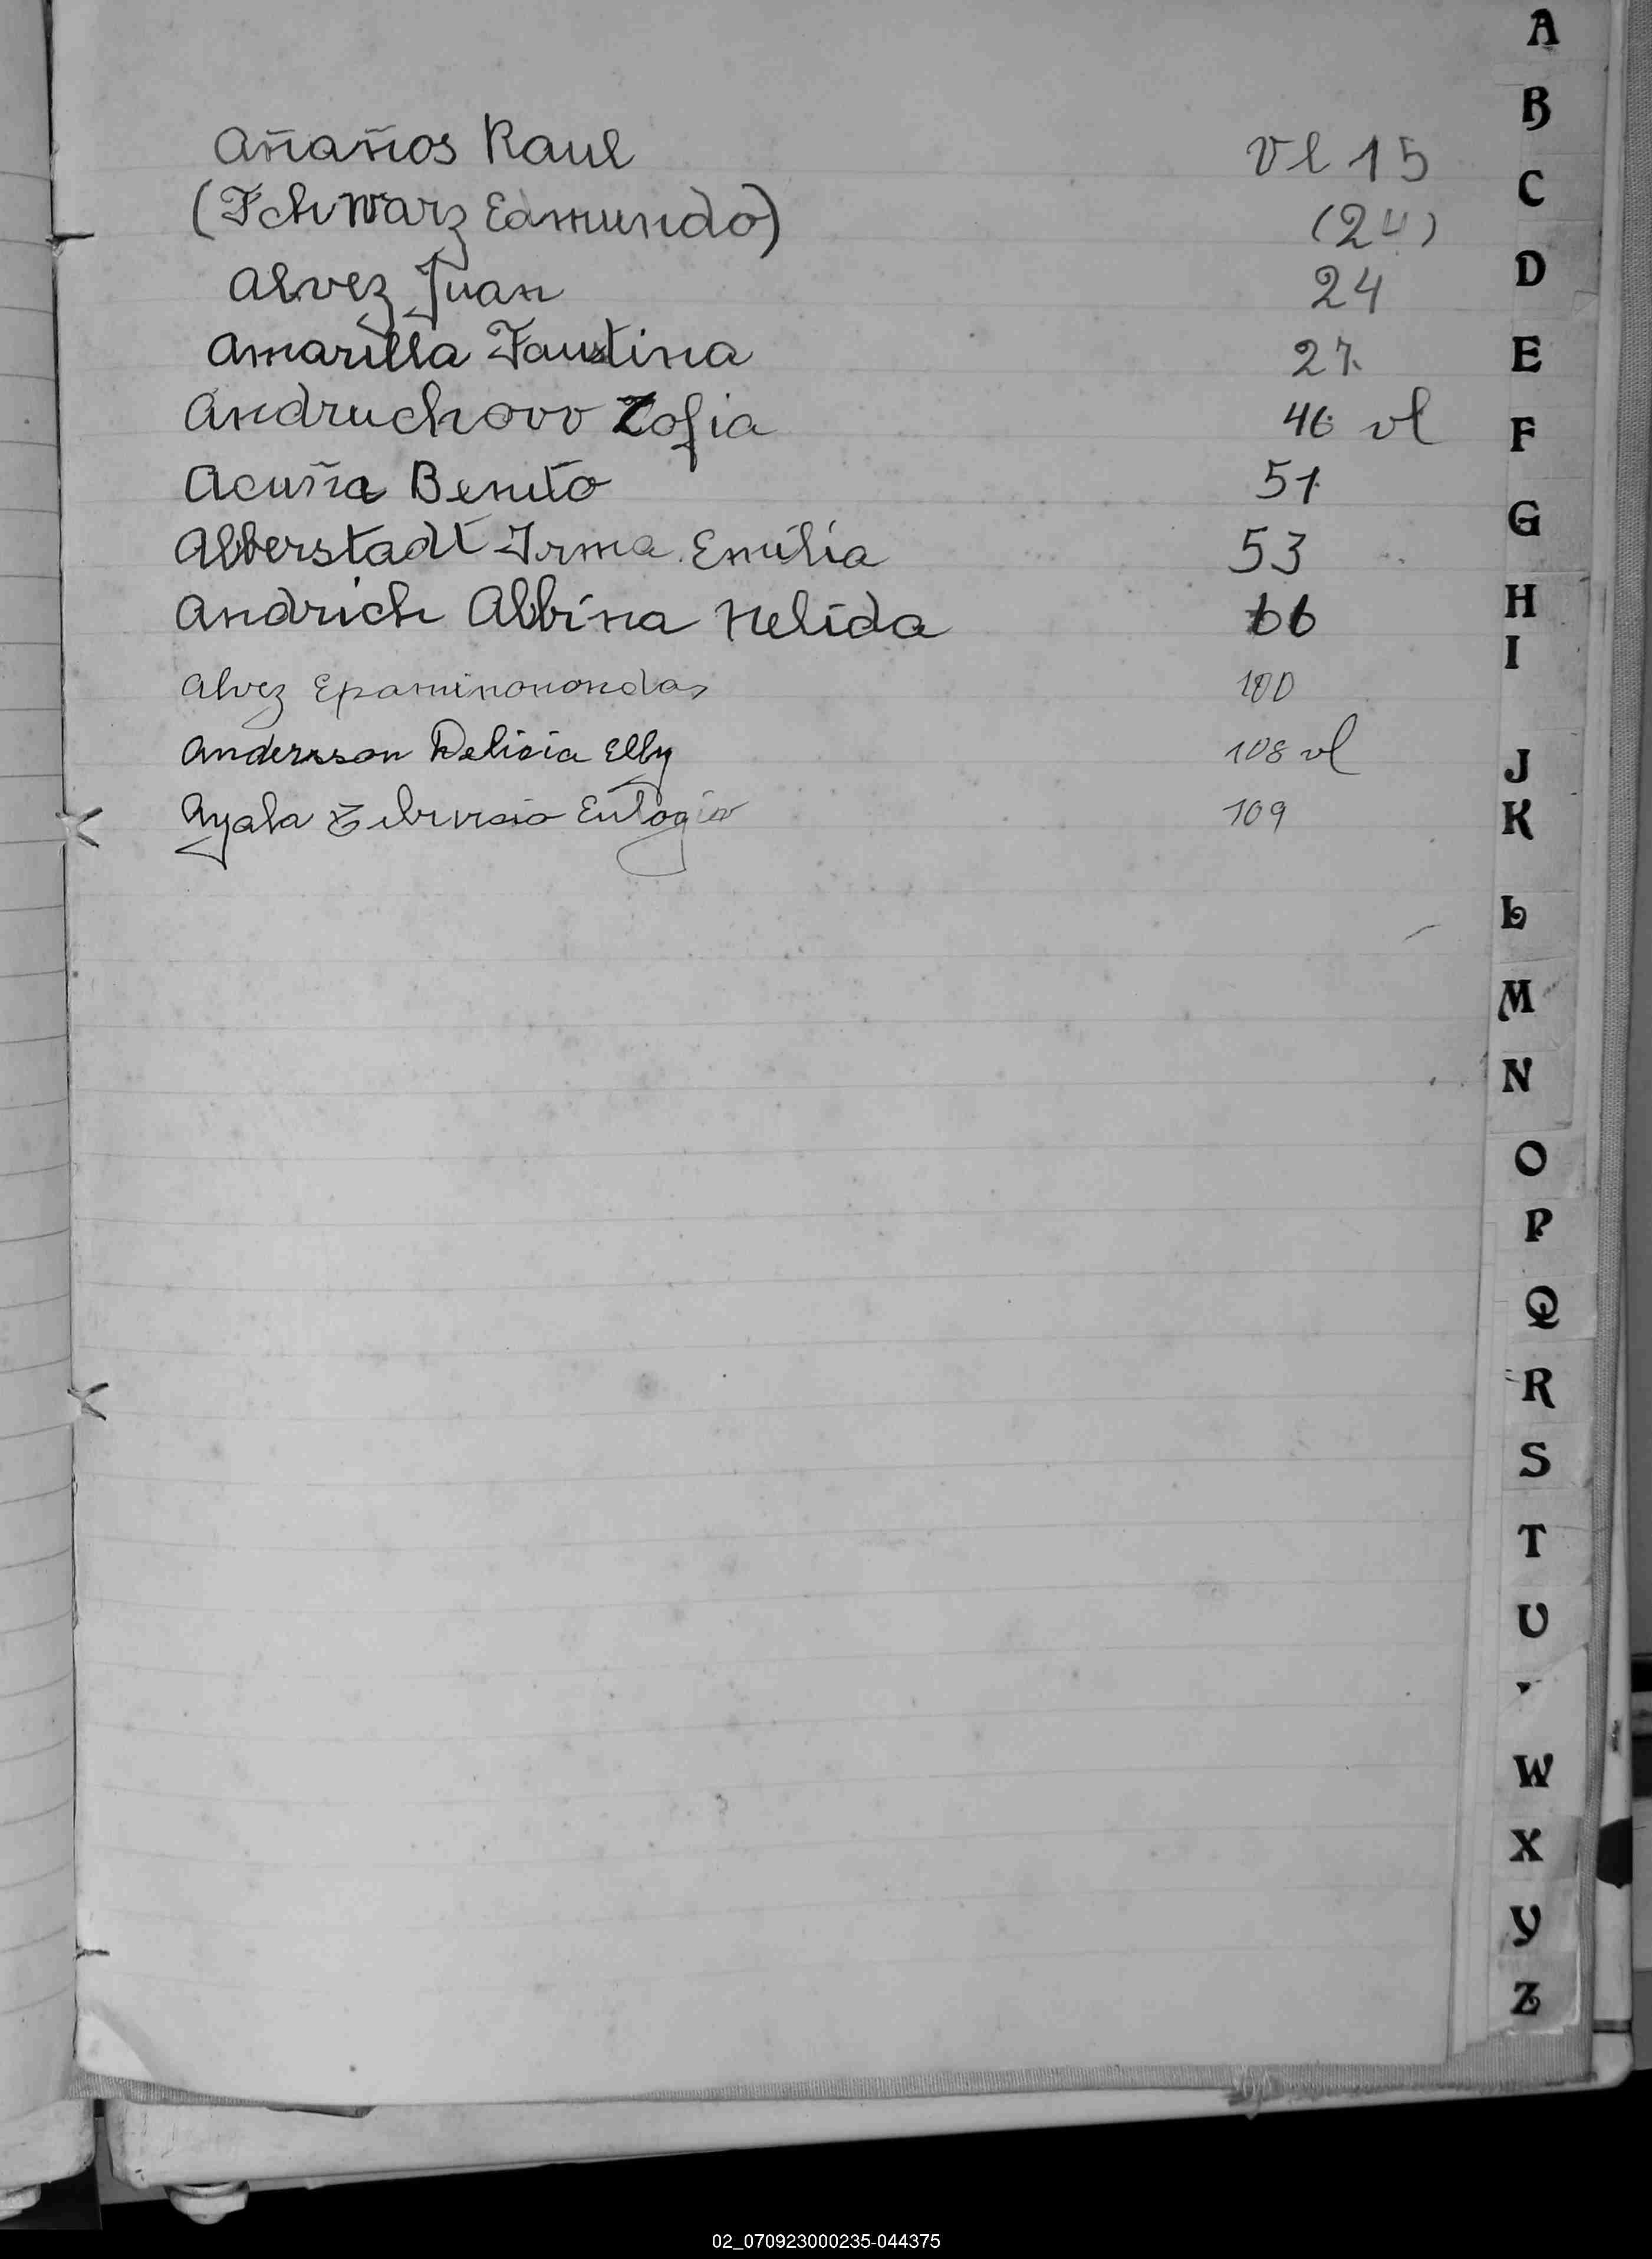 Añaños Raul Vl 15
(Schwarz Edmundo) (24)
Alvez Juan 24
Amarilla Faustina 27
Andruchow Zofia 46 vl
Acuña Benito 51
Alberstadt Irma Emilia 53
Andrich Albina Nelida 66
Alvez Epaminonondas 100
Andersson Delicia Elby 108 vl
Ayala Eulogio 109
A
B
C
D
E
F
G
H
I
J
K
L
M
N
O
P
Q
R
S
T
U
W
X
Y
Z
02_070923000235-044375